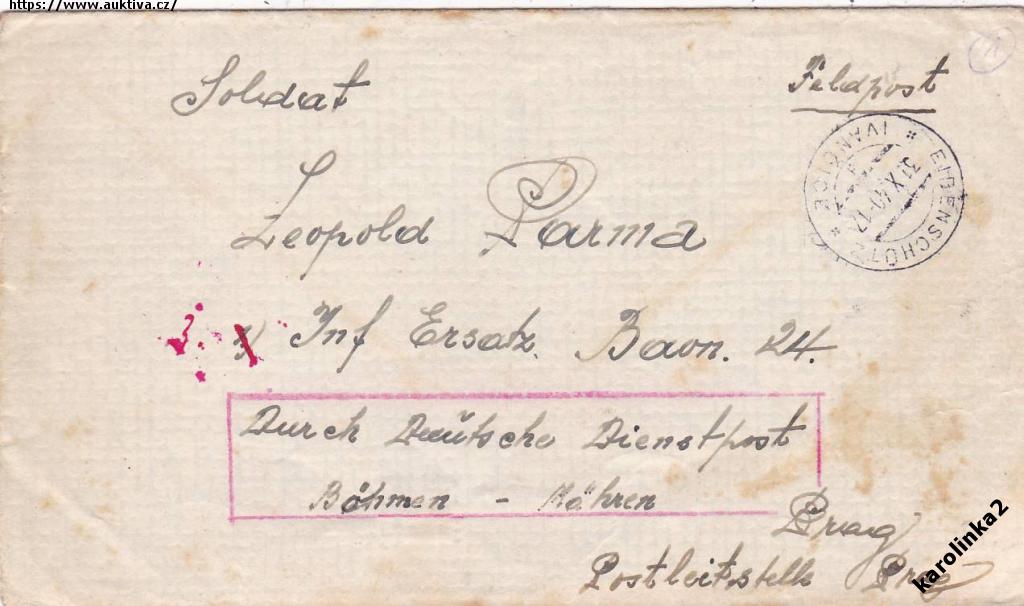 https://www.auktiva.cz/
Soldat
Feldpost
EIBENSCHÜTZ * IVANČICE *
31.X.40-17
Leopold Parma
3. Inf Ersatz Baon. 24.
Durch Deutsche Dienstpost
Böhmen - Mähren
Prag
Postleitstelle Prag
karolinka2